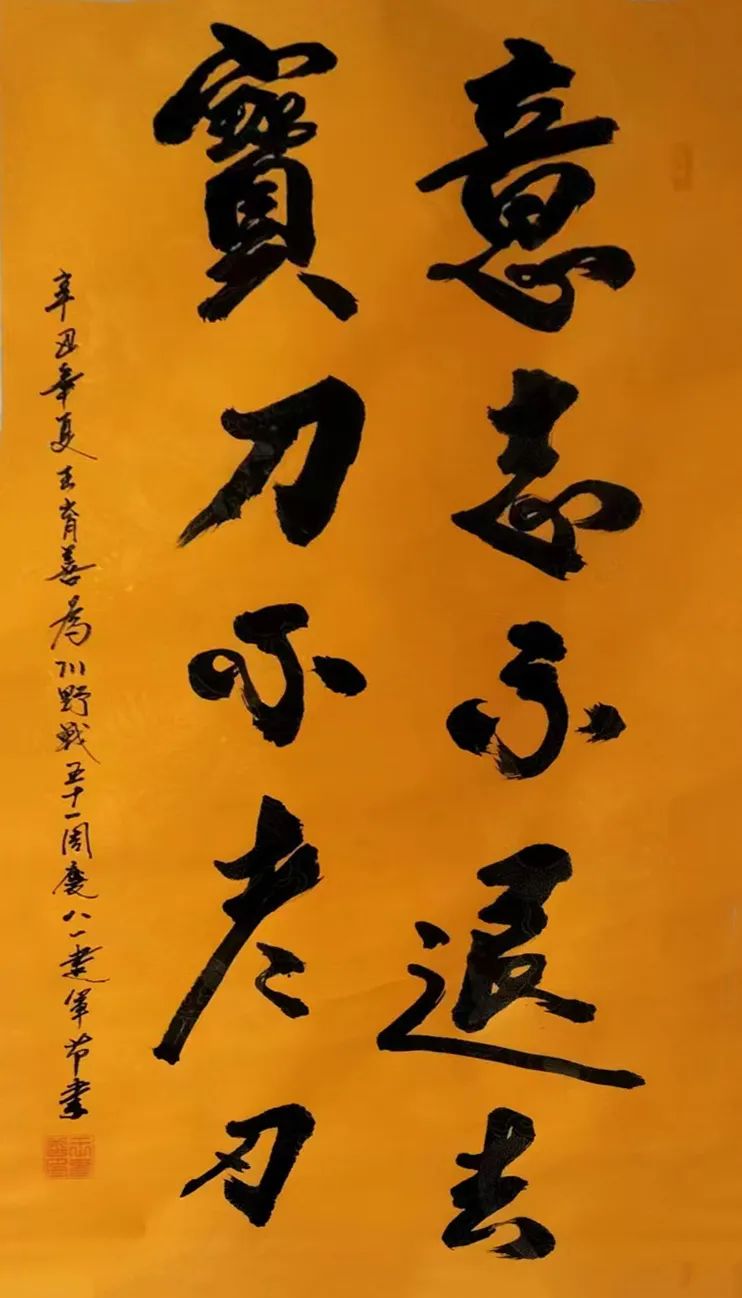 意志不退去
寶刀不老刃
辛丑年夏王育善為川野戰五十一周慶八一建軍节書